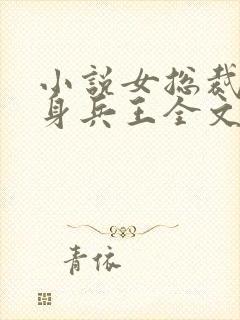 小说女总裁
身兵王全文
青依